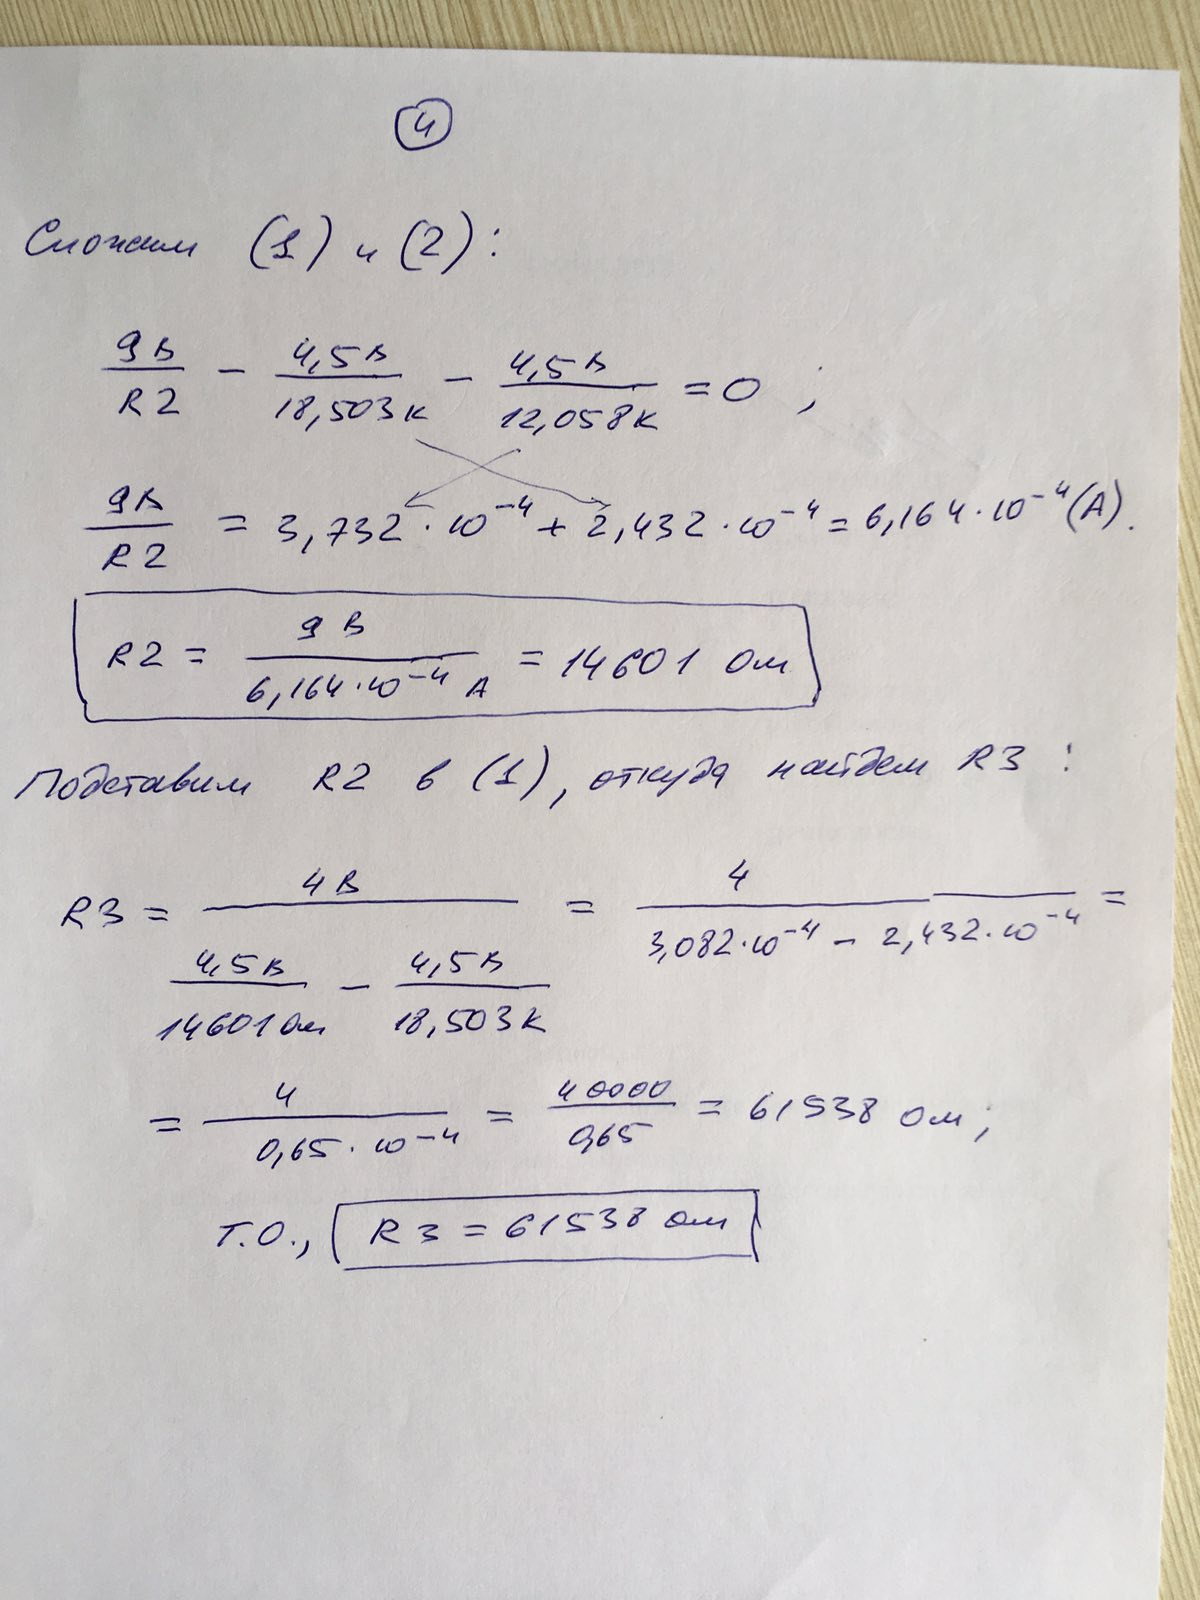 4
Сложим (1) и (2):
9В/R2 − 4,5В/18,503к − 4,5В/12,058к = 0 ;
9В/R2 = 3,732·10⁻⁴ + 2,432·10⁻⁴ = 6,164·10⁻⁴ (А).
R2 = 9В/6,164·10⁻⁴ А = 14601 Ом
Подставим R2 в (1), откуда найдем R3 :
R3 = 4В/(4,5В/14601Ом − 4,5В/18,503к) = 4/(3,082·10⁻⁴ − 2,432·10⁻⁴) =
= 4/0,65·10⁻⁴ = 40000/0,65 = 61538 Ом;
Т.О., R3 = 61538 Ом